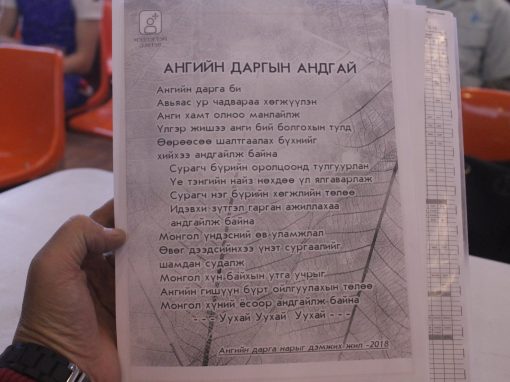 АНГИЙН ДАРГЫН АНДГАЙ
Ангийн дарга би
Авьяас ур чадвараа хөгжүүлэн
Анги хамт олноо манлайлж
Үлгэр жишээ анги бий болгохын тулд
Өөрөөсөө шалтгаалах бүхнийг
хийхээ андгайлж байна
Сурагч бүрийн оролцоонд тулгуурлан
Үе тэнгийн найз нөхдөө үл ялгаварлаж
Сурагч нэг бүрийн хөгжлийн төлөө
Идэвхи зүтгэл гарган ажиллахаа
андгайлж байна
Монгол үндэсний өв уламжлал
Өвөг дээдсийнхээ үнэт сургаалийг
шамдан судалж
Монгол хүн байхын утга учрыг
Ангийн гишүүн бүрт ойлгуулахын төлөө
Монгол хүний ёсоор андгайлж байна
- - - Уухай Уухай Уухай - - -
Ангийн дарга нарыг дэмжих жил -2018